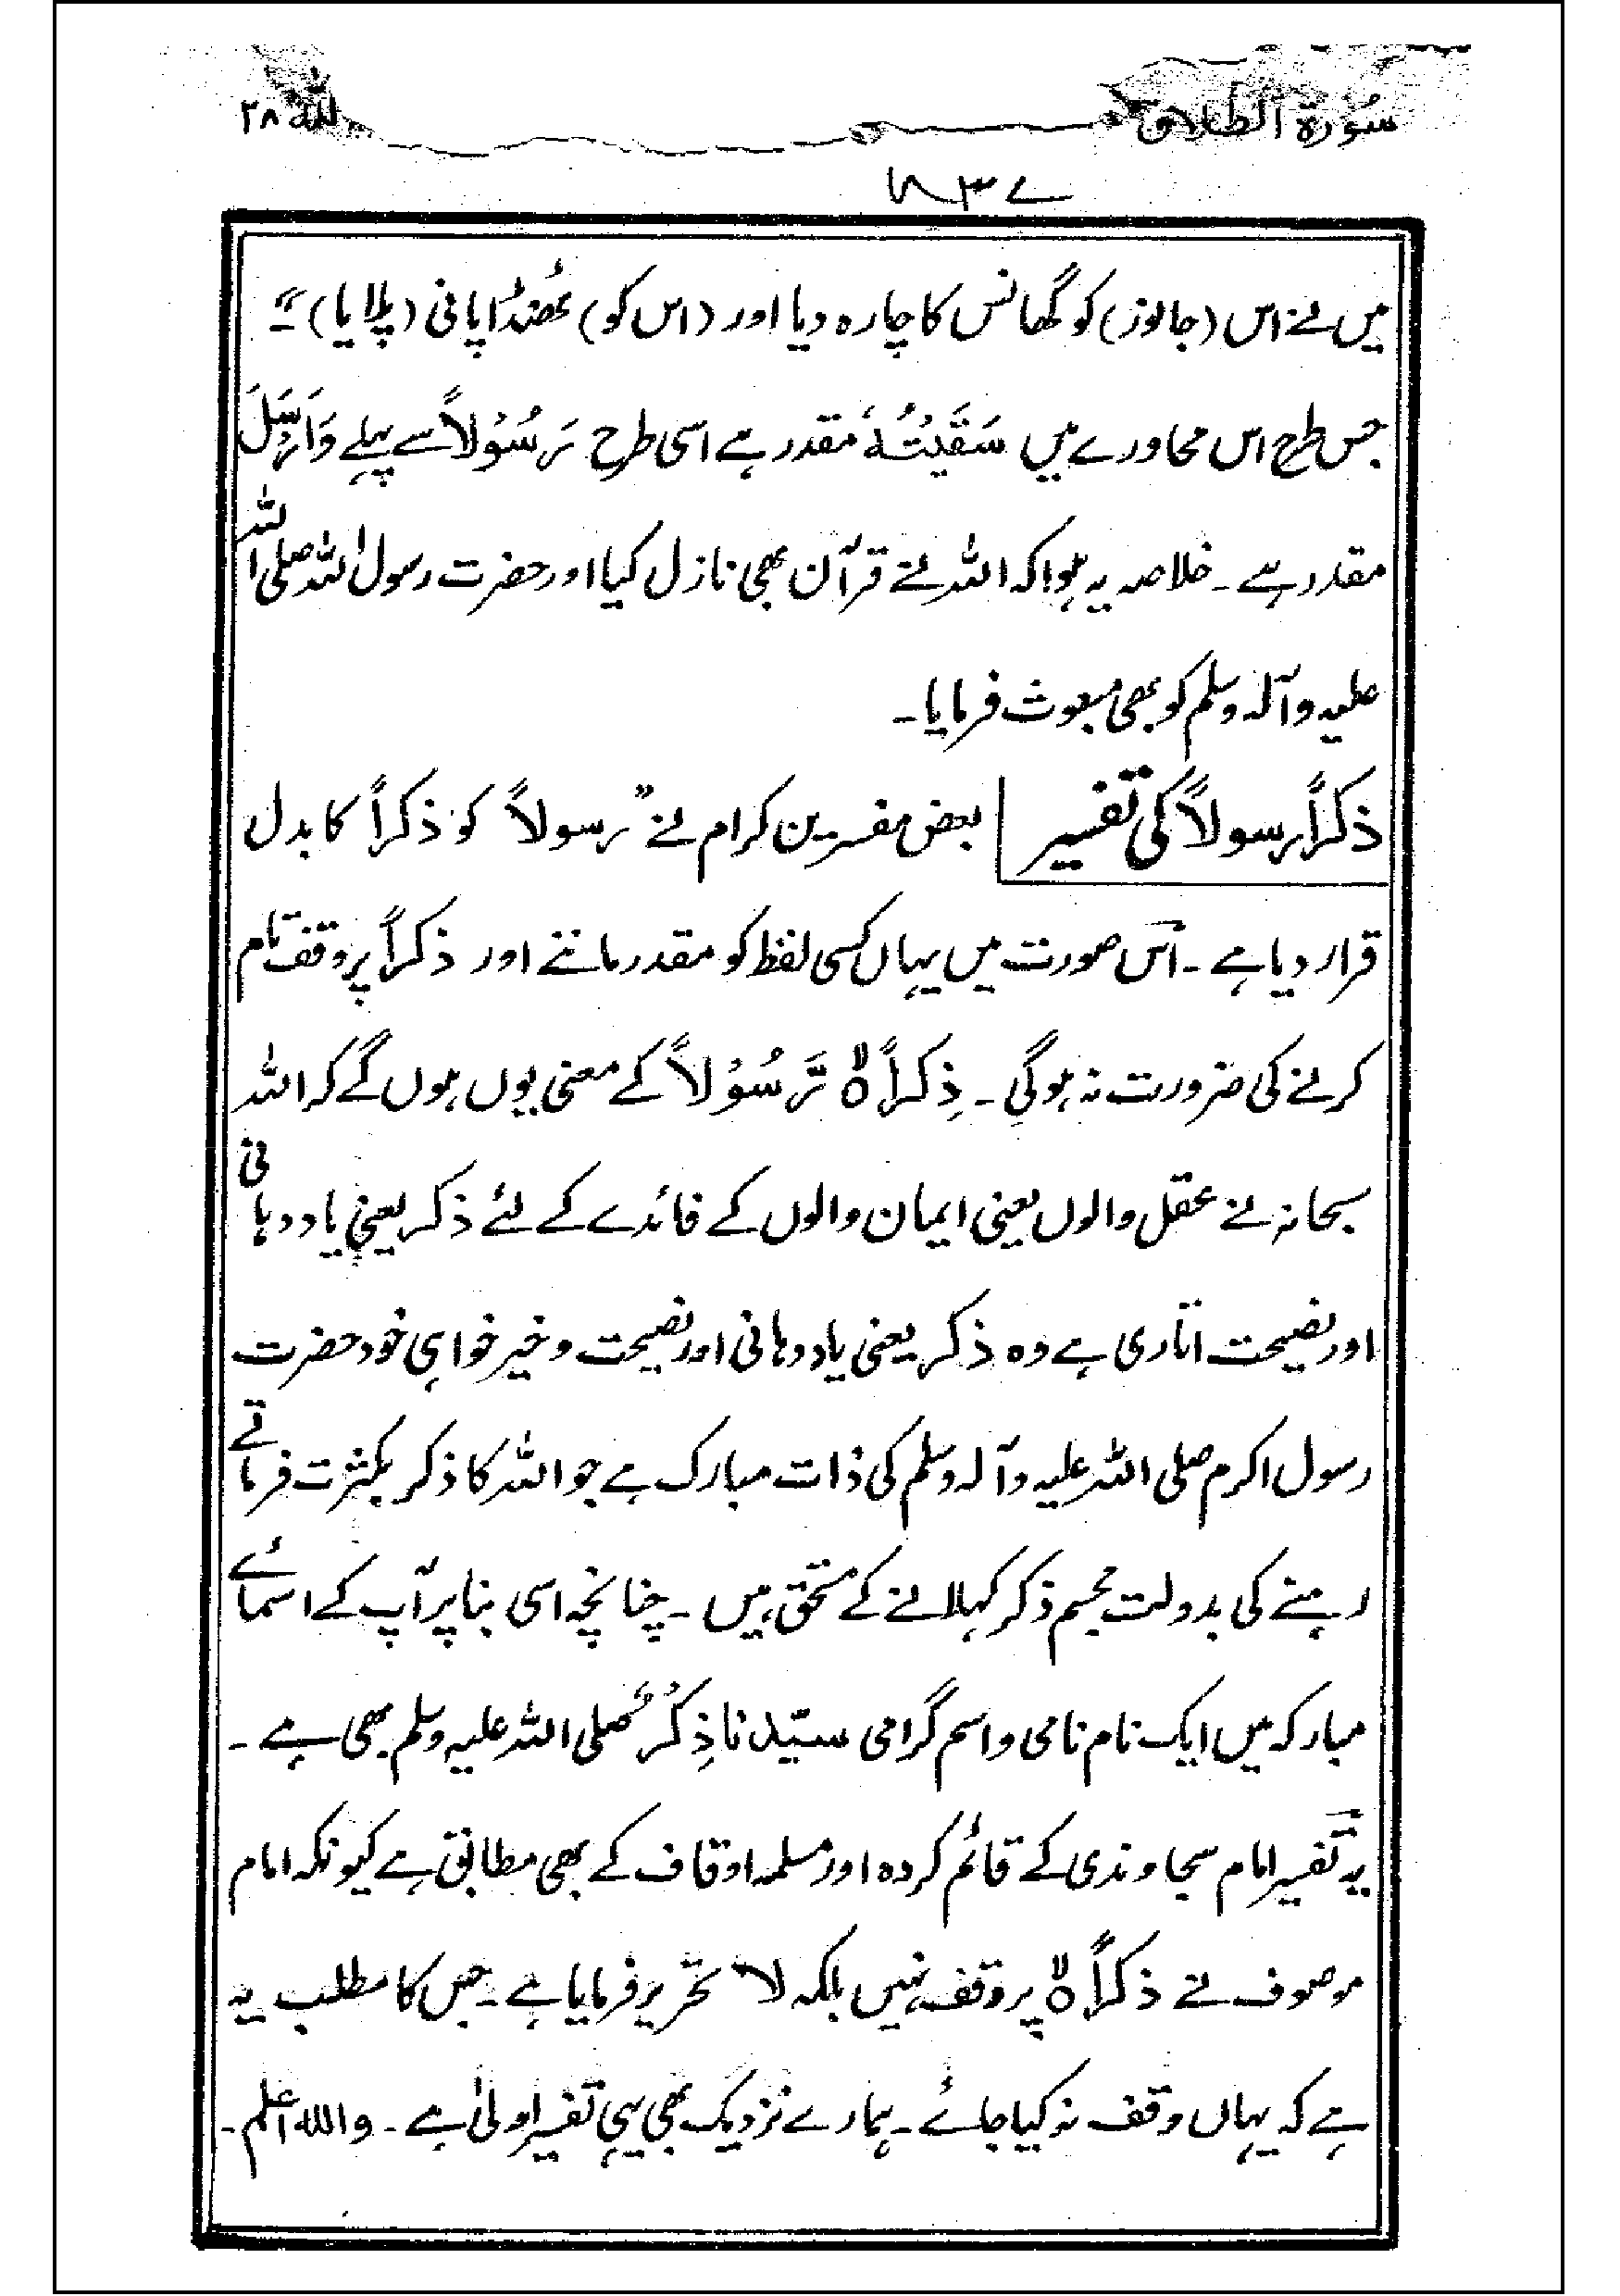 سُوْرَةُ الطَّلَاق
اللہ ٢٨
٨٣٧
میں نے اس (جانور) کو گھانس کا چارہ دیا اور (اس کو) ٹھنڈا پانی (پلایا)"۔
جس طرح اس محاورے میں سَقَیْتُہٗ مقدر ہے اسی طرح رَسُوْلاً سے پہلے وَاَرْسَلَ
مقدر ہے ۔ خلاصہ یہ ہوا کہ اللہ نے قرآن بھی نازل کیا اور حضرت رسول اللہ صلی اللہ
علیہ وآلہ وسلم کو بھی مبعوث فرمایا ۔
ذکراً رسولاً کی تفسیر بعض مفسرین کرام نے "رسولاً کو ذکراً کا بدل
قرار دیا ہے ۔ اس صورت میں یہاں کسی لفظ کو مقدر ماننے اور ذکراً پر وقف تام
کرنے کی ضرورت نہ ہوگی ۔ ذِکراً ۙ رَّسُوْلاً کے معنی یوں ہوں گے کہ اللہ
سبحانہ نے عقل والوں یعنی ایمان والوں کے فائدے کے لئے ذکر یعنی یاددہانی
اور نصیحت اتاری ہے وہ ذکر یعنی یاددہانی اور نصیحت و خیر خواہی خود حضرت
رسول اکرم صلی اللہ علیہ وآلہ وسلم کی ذات مبارک ہے جو اللہ کا ذکر بکثرت فرماتے
رہنے کی بدولت مجسم ذکر کہلانے کے مستحق ہیں ۔ چنانچہ اسی بنا پر آپ کے اسمائے
مبارکہ میں ایک نام نامی و اسم گرامی سیّدنا ذِکْرٌ صلی اللہ علیہ وسلم بھی ہے ۔
یہ تفسیر امام سجاوندی کے قائم کردہ اور مسلمہ اوقاف کے بھی مطابق ہے کیونکہ امام
موصوف نے ذکراً ۙ پر وقف نہیں بلکہ لا تحریر فرمایا ہے ۔ جس کا مطلب یہ
ہے کہ یہاں وقف نہ کیا جائے ۔ ہمارے نزدیک بھی یہی تفسیر اولیٰ ہے ۔ واللہ اعلم ۔